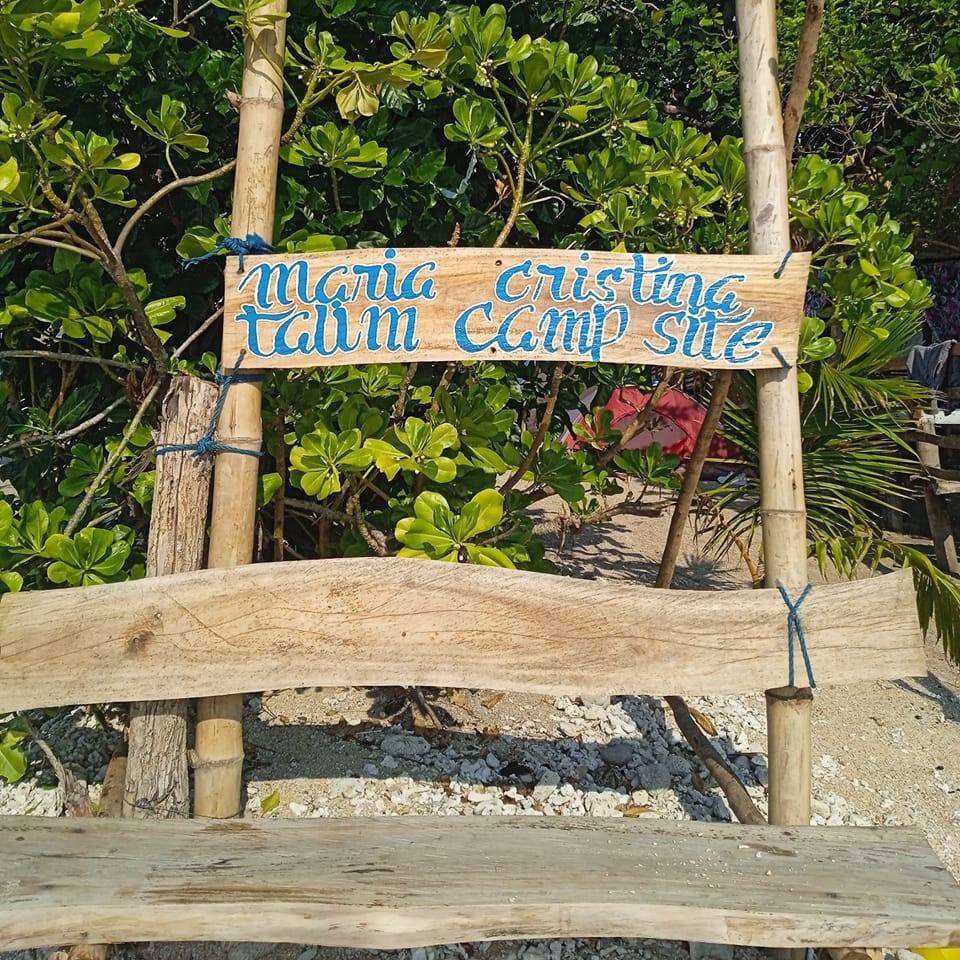 maria cristina
talim camp site